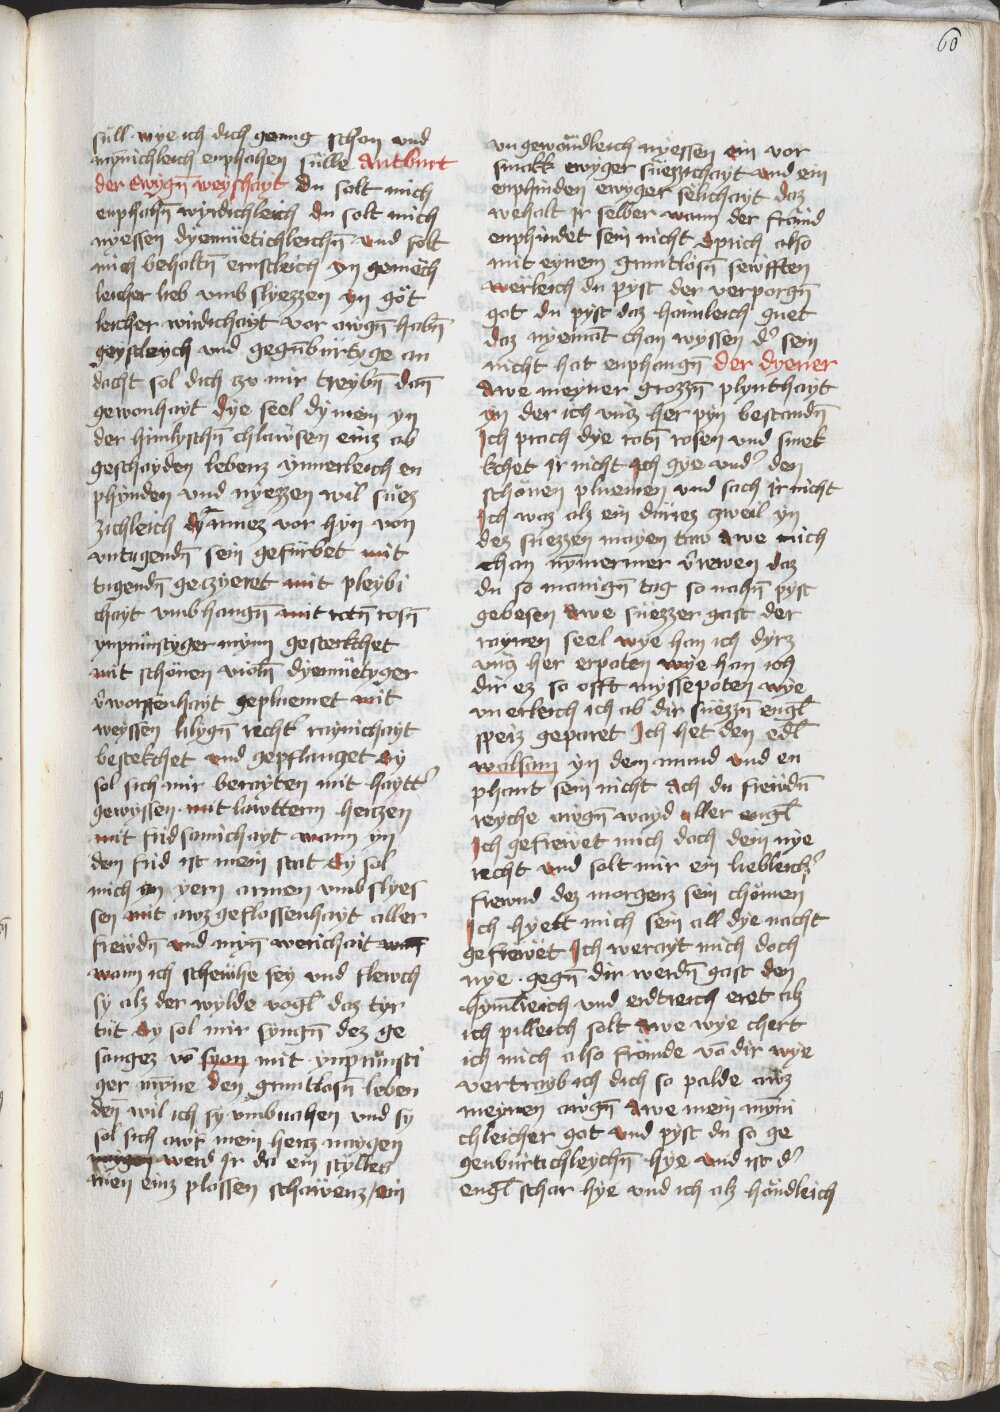 60
süll wye ich dich genug schon und
mynichleich enphahen sülle Antburt
der Ewygn̄ weyshayt du solt mich
enphahn̄ wirdichleich du solt mich
nyessen dyemüetichleichn̄ und solt
mich behaltn̄ ernstleich yn gemëch
leicher lieb umb slyezzen yn göt
leicher wirdichayt vor awgn̄ habn̄
geystleych und gegn̄bürtyge an
dacht sol dich czu mir treybn̄ dan̄
gewonhayt dye seel dy mein yn
der himlyschn̄ chlawsen einz ab
geschayden lebenz ynnerleich en
phynden und nyezzen wil süez
zichleich dy muez vor hyn von
untugendn̄ sein gefürbet mit
tugendn̄ geczyeret mit pleybi
chayt umb hangn̄ mit rotn̄ rosn̄
ynprünstyger mynn gestekchet
mit schönen violn̄ dyemüetyger
v̓worffenhayt gepluemet mit
weyssen lilygn̄ recht raynichayt
bestekchet und gepflanget Sy
sol sich mir berayten mit haytt̓
gewyssen mit lawtterm herczen
mit fridsamichayt wann yn
dem frid ist mein stat Sy sol
mich an yern armen umb slyes
sen mit awzgeslossenhayt aller
frewdn̄ und myn̄ werichait
wann ich schewhe sey und flewch
sy alz der wylde vogl daz tyr
tüt Sy sol mir syngn̄ dez ge
sangez vō syon mit ynprünsti
ger myne den gruntlosn̄ leben
den̄ wil ich sy umbuahen und sy
sol sich awf mein hercz naygen
naygen werd Ir da ein stylles
nien einz plossen schawenz / ein
ungewöndleich nyessen ein vor
smekk ewyger süezzichayt und ein
enphinden ewyger sëlichayt daz
wehalt ir selber wann der främd
enphindet sein nicht Sprich also
mit eynem gruntlosn̄ sewfften
werleich du pyst der verporgn̄
got du pyst daz haimleich guet
daz nyemāt chan wyssen d̓ sein
nicht hat enphangn̄ der dyener
Awe meyner grozzn̄ plynthayt
yn der ich uncz her pyn bestandn̄
Ich prach dye rotn̄ rosen und smek
kchet ir nicht Ich gye und̓ den
schönen pluemen und sach ir nicht
Ich waz alz ein dürrez czweil yn
dez süezzen mayen taw Awe mich
chan nȳmermer v̓rewen daz
du so manign̄ tag so nahn̄ pyst
gebesen Awe süezzer gast der
raynen seel wye han ich dyrz
uncz her erpoten wye han ich
dir ez so offt myssepoten wye
un erleich ich ab dir süezzn̄ engl̄
speiz geparet Ich het den edl̄
walsam yn dem mund und en
phant sein nicht Ach du frewdn̄
reyche awgn̄ wayd aller engl̄
Ich gefrewet mich doch dein nye
recht und solt mir ein liebleich̓
frewnd dez morgenz sein chömen
Ich hyett mich sein all dye nacht
gefrewet Ich werayt mich doch
nye gegn̄ dir werdn̄ gast den
hymlreich und erdtreich eret alz
ich pilleich solt Awe wye chert
ich mich also främde vō dir wye
vertrayb ich dich so palde awz
meynen awgn̄ Awe mein myni
chleicher got und pyst du so ge
genbürtichleychn̄ hye und ist d̓
engl̄ schar hye und ich alz händleich